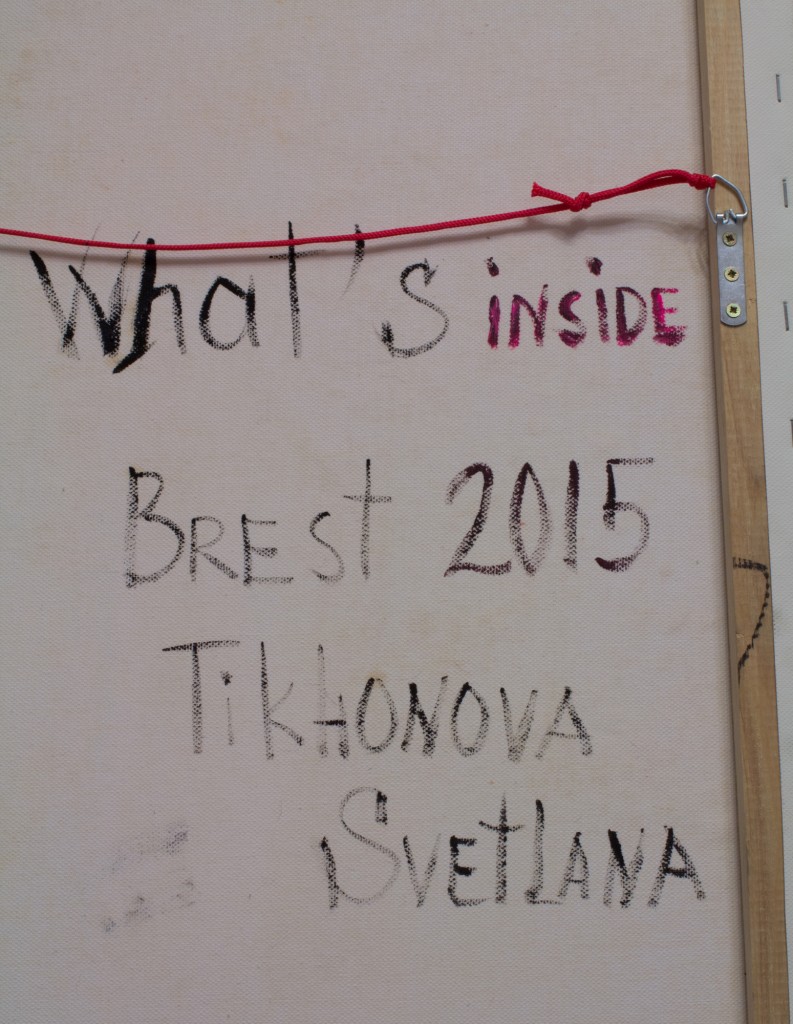 What's iNSiDE
BREST 2015
TikHONOVA
SVETLANA